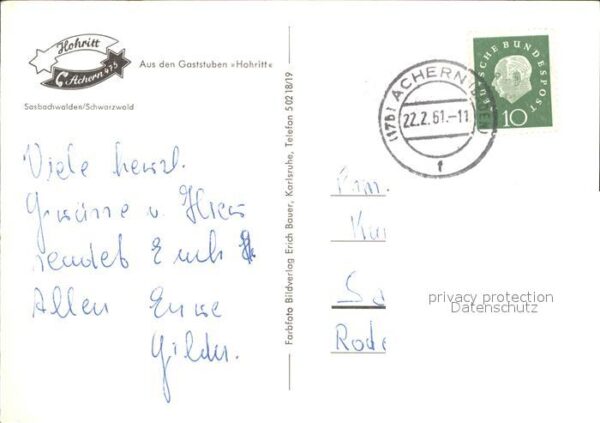 Hohritt
Achern 425
Aus den Gaststuben »Hohritt«
Sasbachwalden/Schwarzwald
Viele herzl.
Grüsse v. Hier
sendet Euch
Allen Eure
Farbfoto Bildverlag Erich Bauer, Karlsruhe, Telefon 50218/19
(17b) ACHERN (BADEN)
22.2.61.-11
f
DEUTSCHE BUNDESPOST
10
Fam.
Rode
privacy protection
Datenschutz